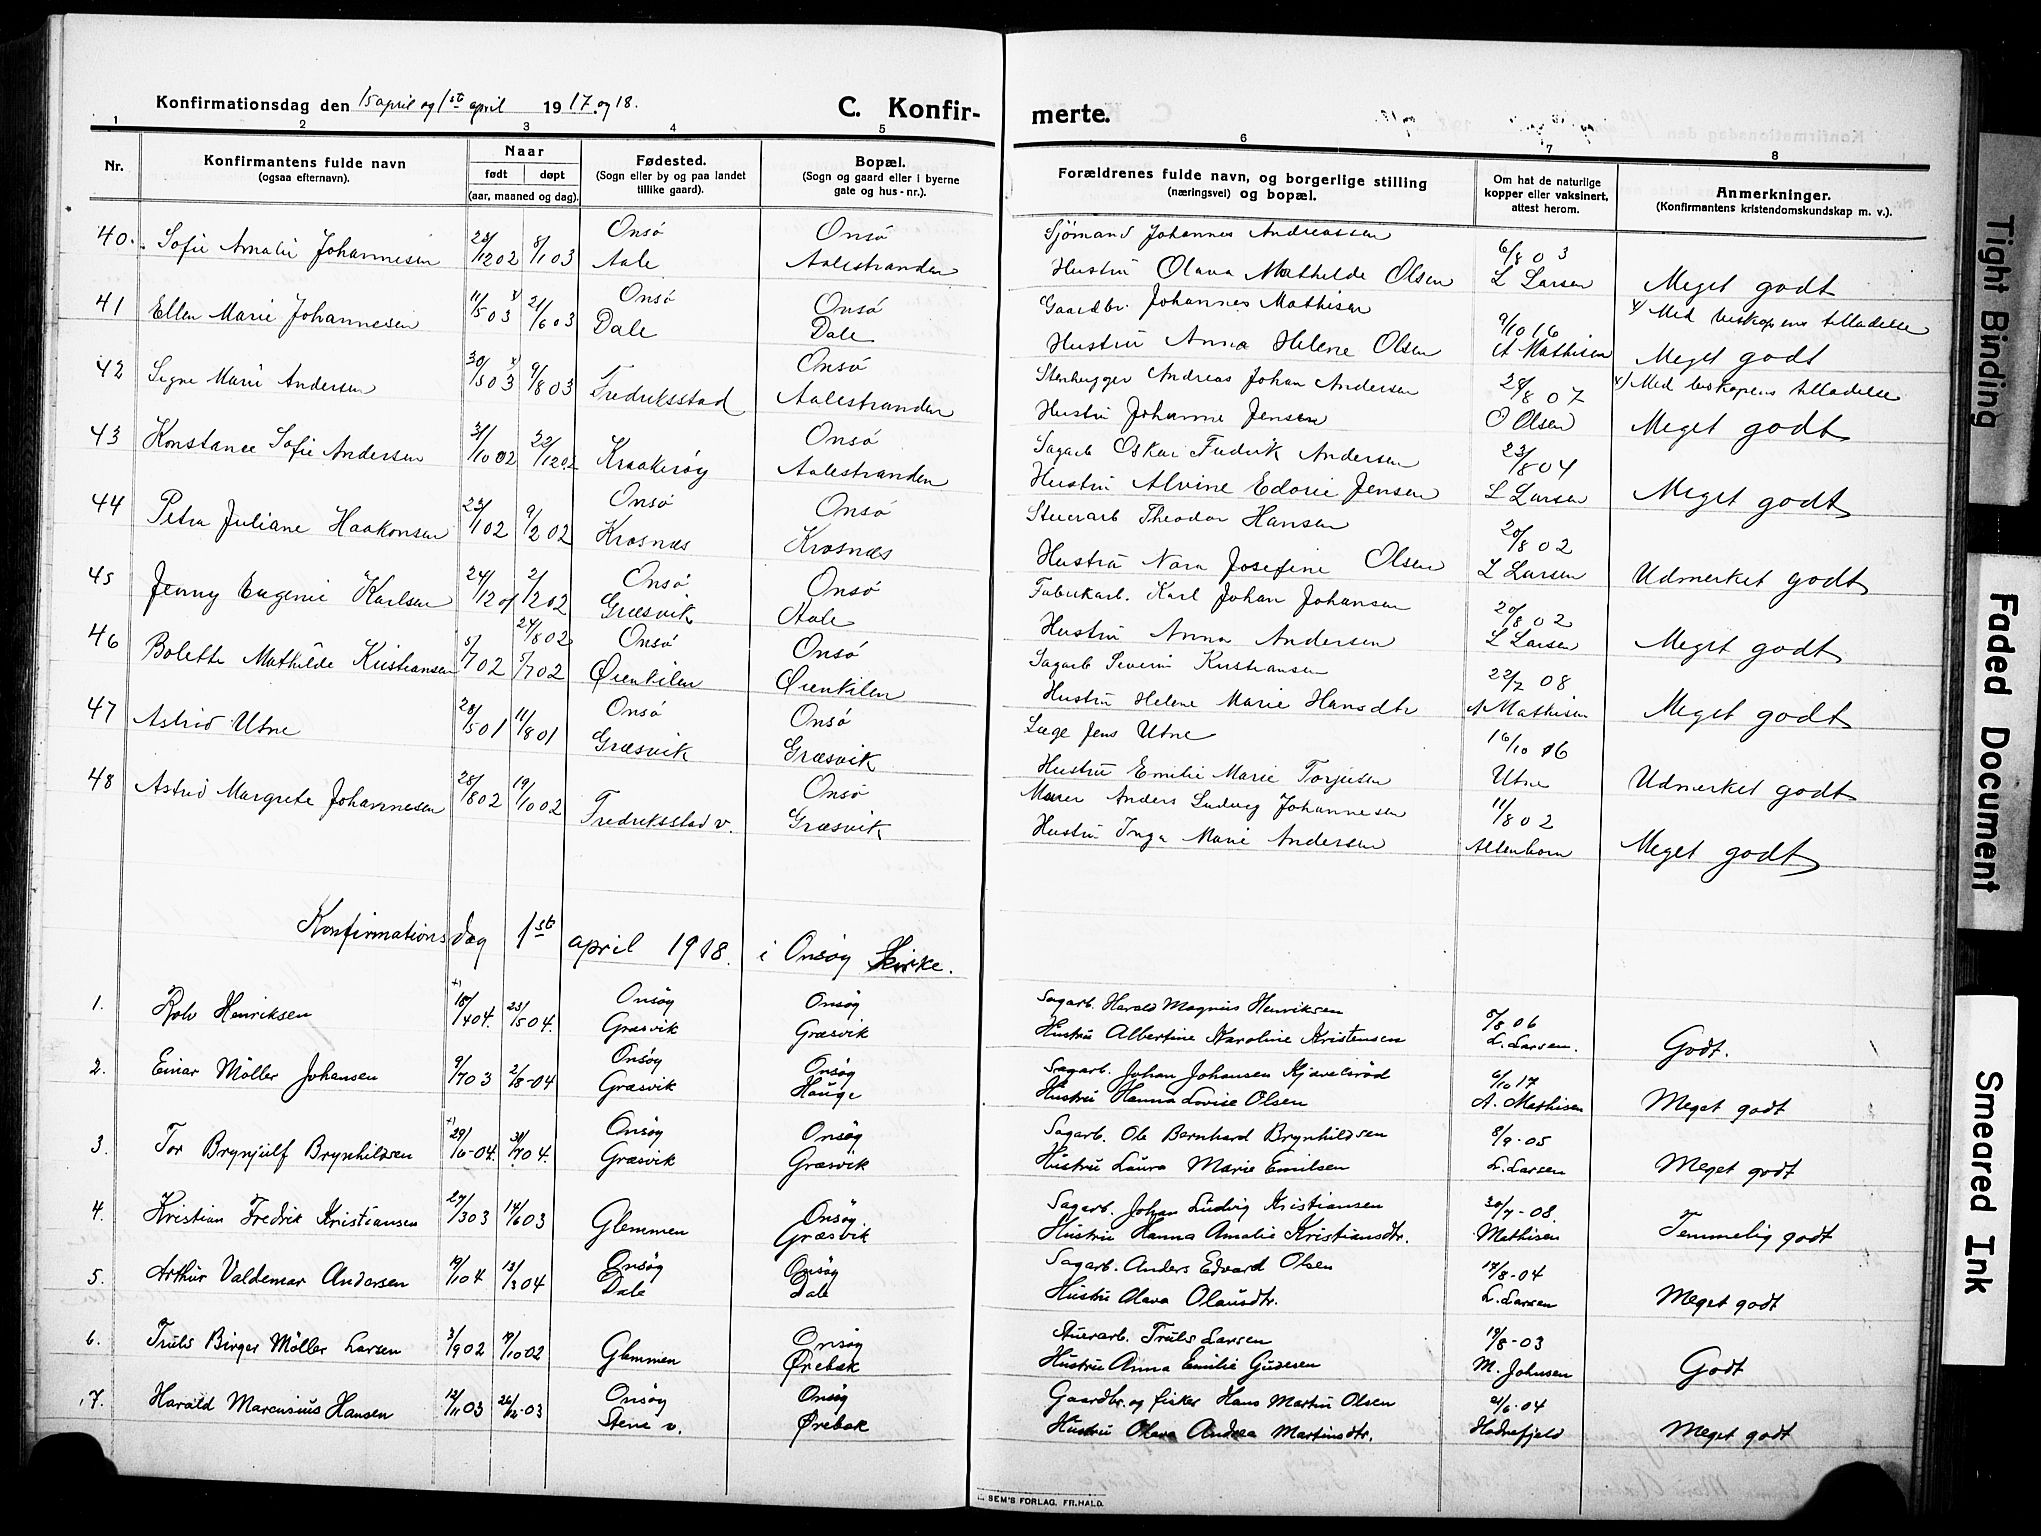 Konfirmationsdag den 15 april og 1st april 1917 og 18.
C. Konfirmerte.
1 2 3 4 5 6 7 8
Nr.
Konfirmantens fulde navn
(ogsaa efternavn).
Naar
født døpt
(aar, maaned og dag).
Fødested.
(Sogn eller by og paa landet
tillike gaard).
Bopæl.
(Sogn og gaard eller i byerne
gate og hus-nr.).
Forældrenes fulde navn, og borgerlige stilling
(næringsvei) og bopæl.
Om hat de naturlige
kopper eller vaksinert,
attest herom.
Anmerkninger.
(Konfirmantens kristendomskundskap m. v.).
40. Sofie Amalie Johannesen 28/12 02 8/1 03 Onsø Aale Onsø Aalestranden
Sjømand Johannes Andreassen
Hustru Olava Mathilde Olsen 6/8 03 L Larsen Meget godt
41 Ellen Marie Johannesen 11/5 03 x) 21/6 03 Onsø Dale Onsø Dale
Gaardbr. Johannes Mathisen x/ Med biskopens tilladelse
Hustru Anna Helene Olsen 9/10 16 A Mathisen Meget godt
42 Signe Marie Andersen 30/5 03 x) 9/8 03 Fredriksstad Onsø Aalestranden
Stenhugger Andreas Johan Andersen x) Med biskopens tilladelse
Hustru Johanne Jensen 28/8 07 O Olsen Meget godt
43 Konstance Sofie Andersen 31/10 02 22/12 02 Kraakerøy Onsø Aalestranden
Sagarb Oskar Fredrik Andersen
Hustru Alvine Edorie Jensen 23/8 04 L Larsen Meget godt
44 Petra Juliane Haakonsen 23/1 02 9/2 02 Onsø Krosnæs Onsø Krosnæs
Stuerarb Theodor Hansen
Hustru Nora Josefine Olsen 20/8 02 L Larsen Udmerket godt
45 Jenny Eugenie Karlsen 24/12 01 2/2 02 Onsø Græsvik Onsø Aale
Fabrikarb. Karl Johan Johansen
Hustru Anna Andersen 20/8 02 L Larsen Meget godt
46 Bolette Mathilde Kristiansen 5/7 02 24/8 02 5/7 02 Onsø Øienkilen Onsø Øienkilen
Sagarb Severin Kristiansen
Hustru Helene Marie Hansdtr 22/7 08 A Mathisen Meget godt
47 Astrid Utne 28/5 01 11/8 01 Onsø Græsvik Onsø Græsvik
Læge Jens Utne
Hustru Emilie Marie Torjusen 16/10 16 Utne Udmerket godt
48 Astrid Margrete Johannesen 28/8 02 19/10 02 Fredriksstad v. Onsø Græsvik
Murer Anders Ludvig Johannesen
Hustru Inga Marie Andersen 11/8 02 Allenborn Meget godt
Konfirmationsdag 1st april 1918. i Onsøy Kirke.
1. Rolv Henriksen +) 18/4 04. 23/5 04. Onsøy Græsvik Onsøy Græsvik
Sagarb. Harald Magnus Henriksen
Hustru Albertine Karoline Kristensen 5/8 06 L. Larsen. Godt.
2. Einar Møller Johansen 9/7 03 2/8-04 Onsøy Græsvik Onsøy Hauge
Sagarb. Johan Johansen Kjøvelsrød
Hustru Hanna Lovise Olsen 6/10 17 A. Mathisen Meget godt
3. Tor Brynjulf Brynhildsen +) 29/6-04. 31/7 04. Onsøy Græsvik Onsøy Græsvik
Sagarb. Ole Bernhard Brynhildsen
Hustru Laura Marie Emilsen 8/9-05 L. Larsen Meget godt
4. Kristian Fredrik Kristiansen 27/3 03 14/6 03 Glemmen Onsøy. Græsvik
Sagarb. Johan Ludvig Kristiansen
Hustru Hanna Amalie Kristiansdtr. 30/7-08. Mathisen Temmelig godt
5. Arthur Valdemar Andersen 19/1 04 13/3 04 Onsøy Dale Onsøy Dale
Sagarb. Anders Edvard Olsen
Hustru Olava Olausdtr. 17/8-04 L. Larsen Meget godt
6. Truls Birger Møller Larsen 3/9 02 19/10-02 Glemmen Onsøy Ørebæk
Stuerarb. Truls Larsen
Hustru Anna Emilie Gudesen 19/8-03 M. Johnsen Godt
7. Harald Marcusius Hansen 12/11 03 26/12-03 Onsøy Stene v. Onsøy Ørebæk
Gaardbr. og fisker Hans Martin Olsen
Hustru Olava Andrea Martinsdtr. 21/6-04 Hadrefjeld Meget godt
SEM'S FORLAG. FR.HALD.
Tight Binding
Faded Document
Smeared Ink